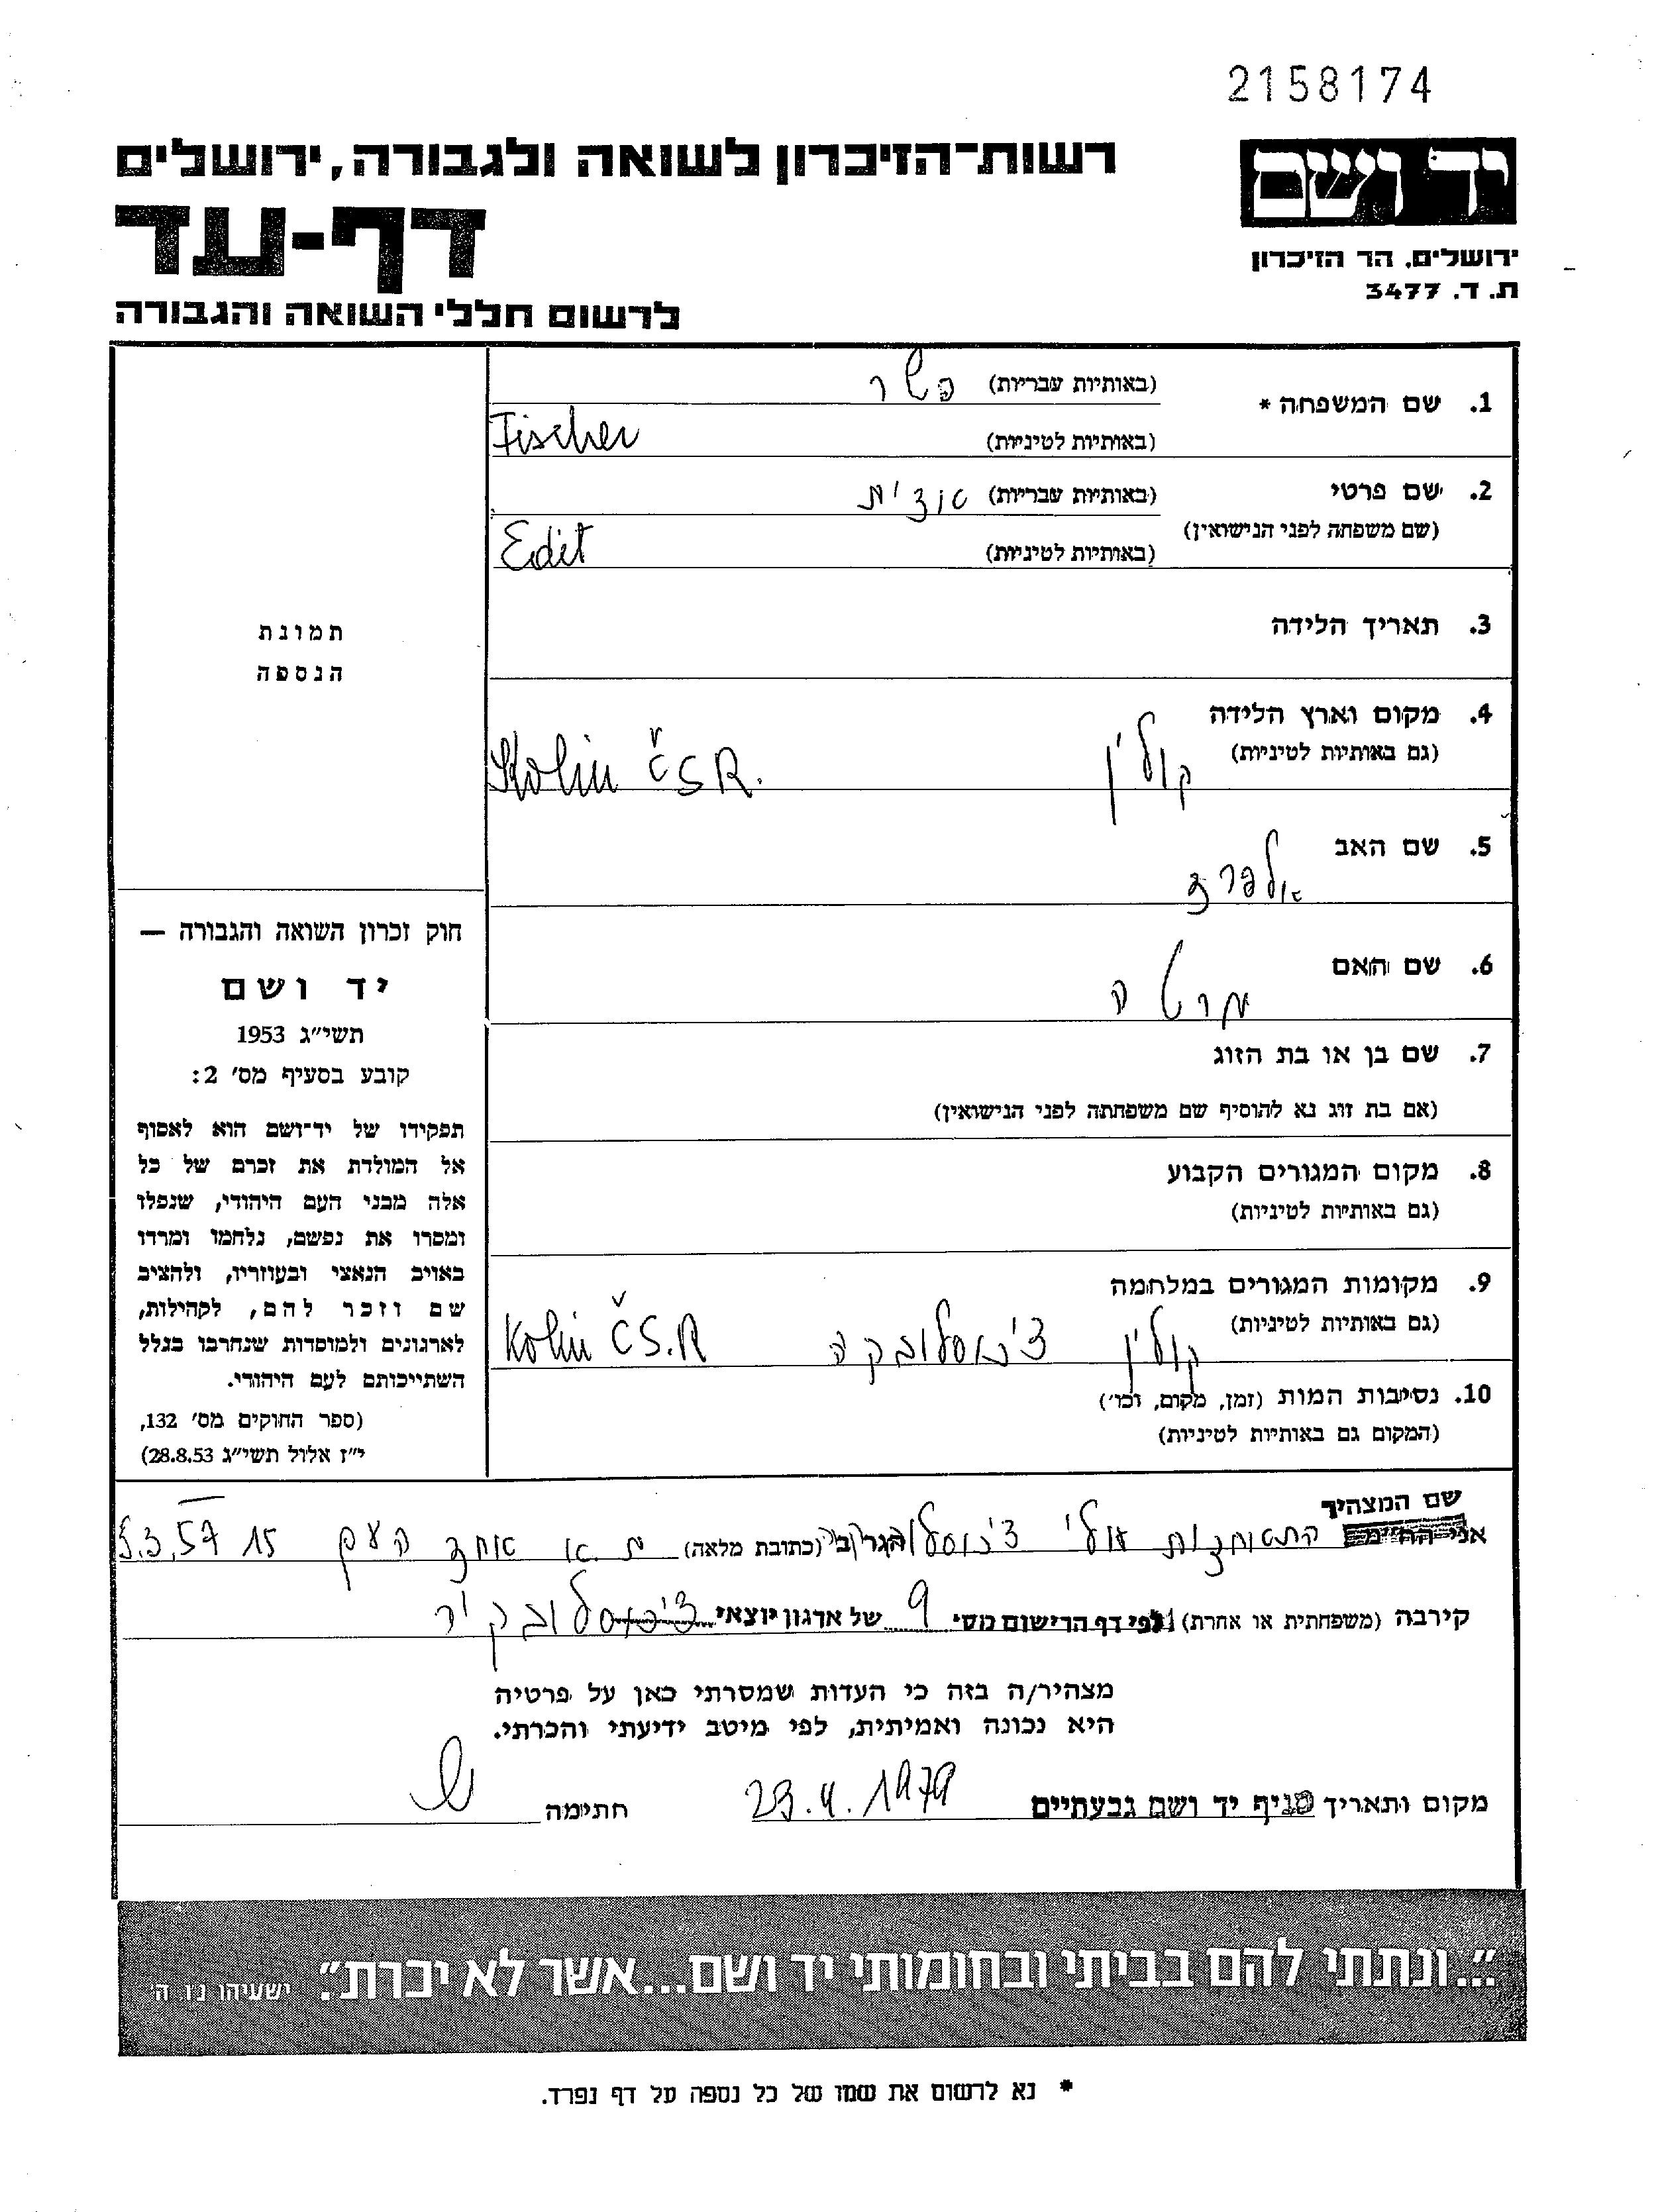 2158174
יד ושם
ירושלים. הר הזיכרון
ת. ד. 3477
רשות־הזיכרון לשואה ולגבורה, ירושלים
דף-עד
לרשום חללי השואה והגבורה
1. שם המשפחה * (באותיות עבריות) פשר
(באותיות לטיניות) Fischer
2. שם פרטי (באותיות עבריות)
(שם משפחה לפני הנישואין)
(באותיות לטיניות) Edit
3. תאריך הלידה
4. מקום וארץ הלידה
(גם באותיות לטיניות) קולין Kolin ČSR.
5. שם האב אלפרד
6. שם האם מרטה
7. שם בן או בת הזוג
(אם בת זוג נא להוסיף שם משפחתה לפני הנישואין)
8. מקום המגורים הקבוע
(גם באותיות לטיניות)
9. מקומות המגורים במלחמה
(גם באותיות לטיניות) קולין צ'כוסלובקיה Kolin ČS.R
10. נסיבות המות (זמן, מקום, וכו')
(המקום גם באותיות לטיניות)
תמונת
הנספה
חוק זכרון השואה והגבורה —
יד ושם
תשי״ג 1953
קובע בסעיף מס' 2:
תפקידו של יד־ושם הוא לאסוף
אל המולדת את זכרם של כל
אלה מבני העם היהודי, שנפלו
ומסרו את נפשם, נלחמו ומרדו
באויב הנאצי ובעוזריו, ולהציב
שם וזכר להם, לקהילות,
לארגונים ולמוסדות שנחרבו בגלל
השתייכותם לעם היהודי.
(ספר החוקים מס' 132,
י״ז אלול תשי״ג 28.8.53)
שם המצהיר
אני התאחדות עולי צ'כוסלובקיה הגר ב (כתובת מלאה) ת.א אחד העם 15
קירבה (משפחתית או אחרת) לפי דף הרישום מס' 9 של ארגון יוצאי צ'כוסלובקיה
מצהיר/ה בזה כי העדות שמסרתי כאן על פרטיה
היא נכונה ואמיתית, לפי מיטב ידיעתי והכרתי.
מקום ותאריך סניף יד ושם גבעתיים 29.4.1979 חתימה
"...ונתתי להם בביתי ובחומותי יד ושם...אשר לא יכרת". ישעיהו נו. ה'
* נא לרשום את שמו של כל נספה על דף נפרד.